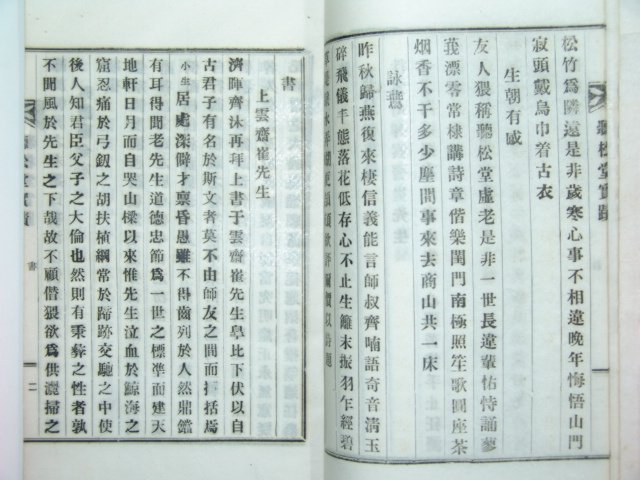 聽松堂實蹟
松竹爲隣遠是非歲寒心事不相違晚年悔悟山門
寂頭戴烏巾着古衣
生朝有感
友人猥稱聽松堂虛老是非一世長違輩怙恃誦蓼
莪漂零常棣講詩章偕樂閨門南極照笙歌圓座茶
烟香不干多少座間事來去商山共一床
詠鷰
昨秋歸燕復來棲信義能言師叔齊喃語奇音清玉
碎飛儀半態落花低存心不止生雛末振羽乍經碧
書
上雲齋崔先生
濟暉齊沐再拜上書于雲齋崔先生皐比下伏以自
古君子有名於斯文者莫不由師友之間而括括焉
小生居處深僻才禀昏愚雖不得齒列於人然鼎鐺
有耳得聞老先生道德忠節爲一世之標準而建天
地軒日月而自哭山樑以來惟先生泣血於鯨海之
窟忍痛於弓釼之胡扶植綱常於蹄跡交馳之中使
後人知君臣父子之大倫也然則有秉彝之性者孰
不聞風於先生之下哉故不顧僭猥欲爲供灑掃之
書
二